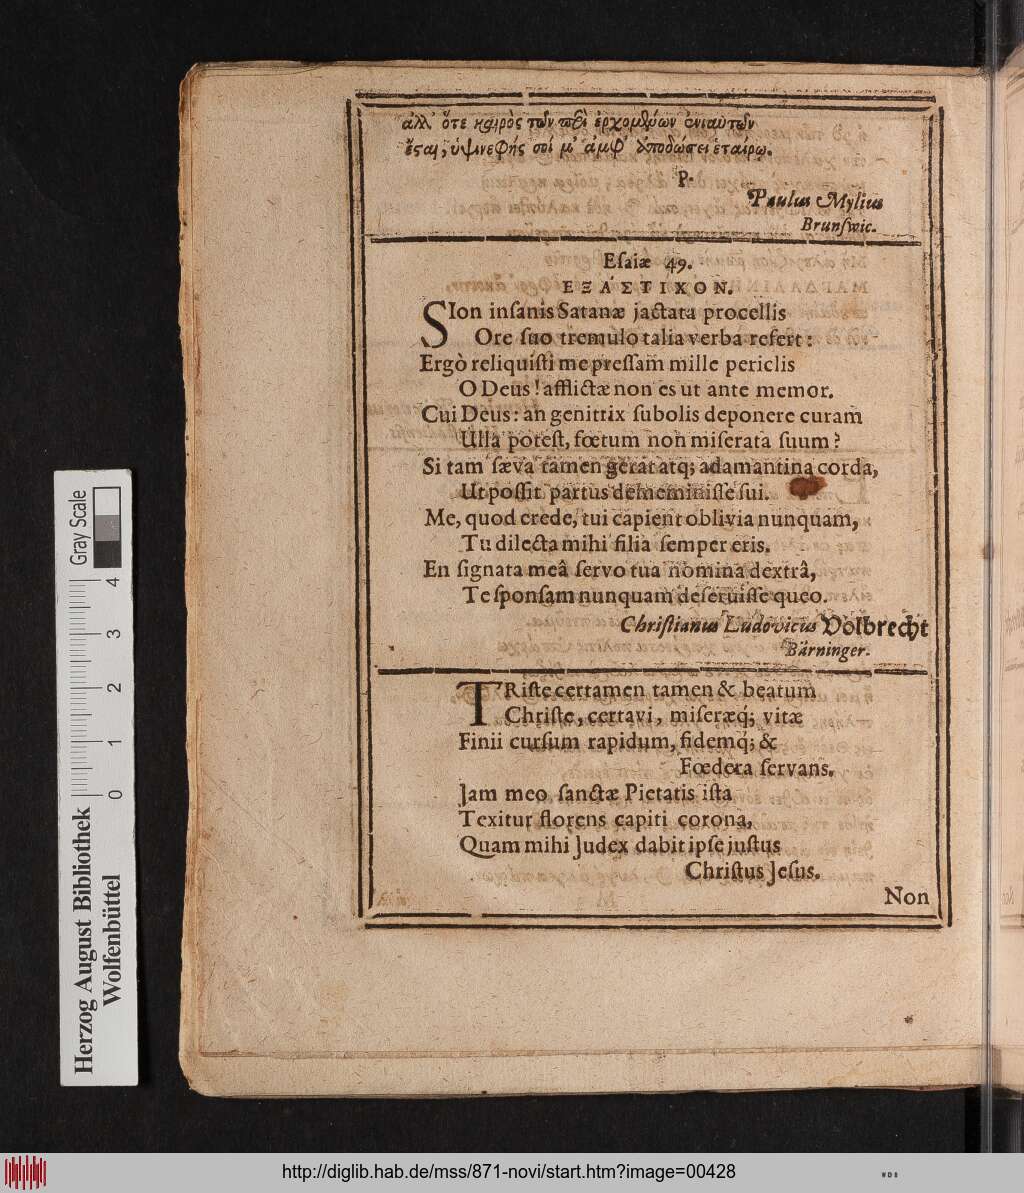 ἀλλ' ὅτε καιρὸς τῶν περὶ ἐρχομένων ἐνιαυτῶν
ἔσαι, ὑψινεφής σοί μ' ἀμφ' ἀποδώσει ἑταίρῳ.
P.
Paulus Mylius
Brunſwic.
Eſaiæ 49.
ΕΞΑΣΤΙΧΟΝ.
SIon inſanis Satanæ jactata procellis
Ore ſuo tremulo talia verba refert:
Ergò reliquiſti me preſſam mille periclis
O Deus! afflictæ non es ut ante memor.
Cui Deus: an genitrix ſubolis deponere curam
Ulla poteſt, fœtum non miſerata ſuum?
Si tam ſæva tamen gerat atq; adamantina corda,
Ut poſſit partus dememiniſſe ſui.
Me, quod crede, tui capient oblivia nunquam,
Tu dilecta mihi filia ſemper eris.
En ſignata meâ ſervo tua nomina dextrâ,
Te ſponſam nunquam deſeruiſſe queo.
Chriſtianus Ludovicus Volbrecht
Bärninger.
TRiſte certamen tamen & beatum
Chriſte, certavi, miſeræq́; vitæ
Finii curſum rapidum, fidemq́; &
Fœdera ſervans.
Jam meo ſanctæ Pietatis iſta
Texitur florens capiti corona,
Quam mihi Judex dabit ipſe juſtus
Chriſtus Jeſus.
Non
Herzog August Bibliothek
Wolfenbüttel
0 1 2 3 4
Gray Scale
http://diglib.hab.de/mss/871-novi/start.htm?image=00428
WDB